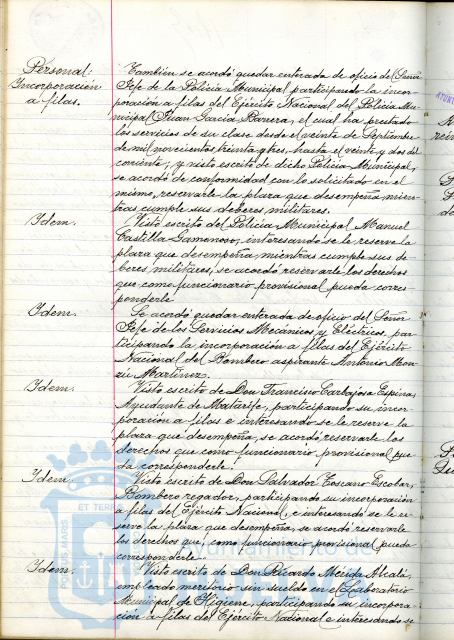 Personal:
Incorporación
a filas.
También se acordó quedar enterada de oficio del Señor
Jefe de la Policía Municipal participando la incor-
poración a filas del Ejército Nacional del Policía Mu-
nicipal Juan García Barrera, el cual ha prestado
los servicios de su clase desde el veinte de Septiembre
de mil novecientos treinta y tres, hasta el veinte y dos del
corriente; y visto escrito de dicho Policía Municipal,
se acordó de conformidad con lo solicitado en el
mismo, reservarle la plaza que desempeña mien-
tras cumple sus deberes militares.
Idem.
Visto escrito del Policía Municipal Manuel
Castilla Gamonoso, interesando se le reserve la
plaza que desempeña mientras cumple sus de-
beres militares, se acordó reservarle los derechos
que como funcionario provisional pueda corres-
ponderle
Idem.
Se acordó quedar enterada de oficio del Señor
Jefe de los Servicios Mecánicos y Eléctricos, par-
ticipando la incorporación a filas del Ejército
Nacional del Bombero aspirante Antonio
Martínez.
Idem.
Visto escrito de Don Francisco Carbajosa Espina,
Ayudante de Matarife, participando su incor-
poración a filas e interesando se le reserve la
plaza que desempeña, se acordó reservarle los
derechos que como funcionario provisional pue-
da corresponderle.
Idem.
Visto escrito de Don Salvador Toscano Escobar,
Bombero regador, participando su incorporación
a filas del Ejército Nacional, e interesando se le re-
serve la plaza que desempeña, se acordó reservarle
los derechos que, como funcionario provisional pueda
corresponderle
Idem.
Visto escrito de Don Ricardo Mérida Alcalá,
empleado meritorio sin sueldo en el Laboratorio
Municipal de Higiene, participando su incorpora-
ción a filas del Ejército Nacional e interesando se
ET TERR
Ayuntamiento de